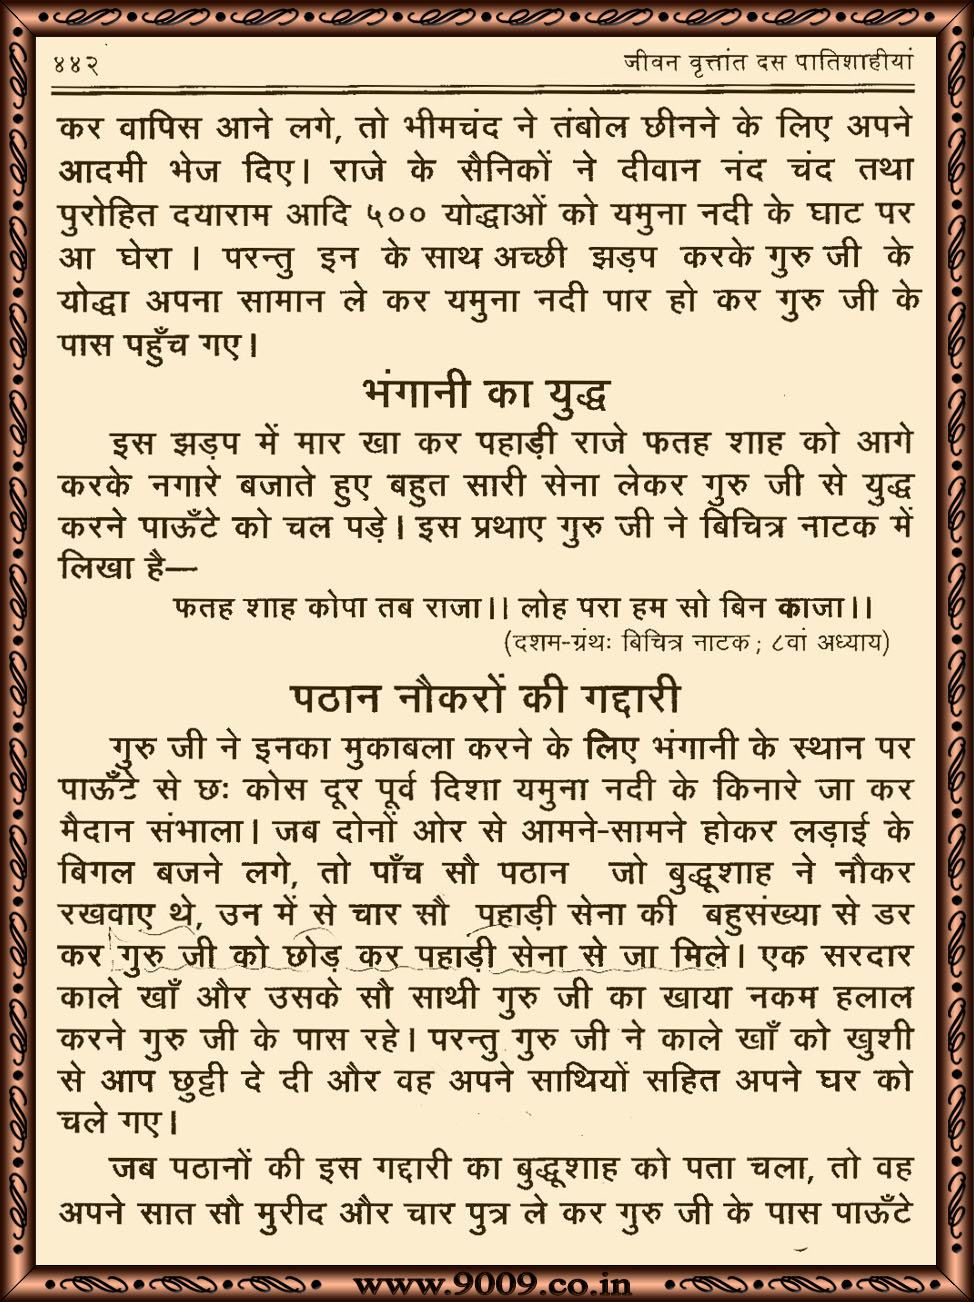 ४४२ जीवन वृत्तांत दस पातिशाहीयां
कर वापिस आने लगे, तो भीमचंद ने तंबोल छीनने के लिए अपने
आदमी भेज दिए। राजे के सैनिकों ने दीवान नंद चंद तथा
पुरोहित दयाराम आदि ५०० योद्धाओं को यमुना नदी के घाट पर
आ घेरा । परन्तु इन के साथ अच्छी झड़प करके गुरु जी के
योद्धा अपना सामान ले कर यमुना नदी पार हो कर गुरु जी के
पास पहुँच गए।
भंगानी का युद्ध
इस झड़प में मार खा कर पहाड़ी राजे फतह शाह को आगे
करके नगारे बजाते हुए बहुत सारी सेना लेकर गुरु जी से युद्ध
करने पाऊँटे को चल पड़े। इस प्रथाए गुरु जी ने बिचित्र नाटक में
लिखा है—
फतह शाह कोपा तब राजा।। लोह परा हम सो बिन काजा।।
(दशम-ग्रंथः बिचित्र नाटक ; ८वां अध्याय)
पठान नौकरों की गद्दारी
गुरु जी ने इनका मुकाबला करने के लिए भंगानी के स्थान पर
पाऊँटे से छः कोस दूर पूर्व दिशा यमुना नदी के किनारे जा कर
मैदान संभाला। जब दोनों ओर से आमने-सामने होकर लड़ाई के
बिगल बजने लगे, तो पाँच सौ पठान जो बुद्धूशाह ने नौकर
रखवाए थे, उन में से चार सौ पहाड़ी सेना की बहुसंख्या से डर
कर गुरु जी को छोड़ कर पहाड़ी सेना से जा मिले। एक सरदार
काले खाँ और उसके सौ साथी गुरु जी का खाया नकम हलाल
करने गुरु जी के पास रहे। परन्तु गुरु जी ने काले खाँ को खुशी
से आप छुट्टी दे दी और वह अपने साथियों सहित अपने घर को
चले गए।
जब पठानों की इस गद्दारी का बुद्धूशाह को पता चला, तो वह
अपने सात सौ मुरीद और चार पुत्र ले कर गुरु जी के पास पाऊँटे
www.9009.co.in